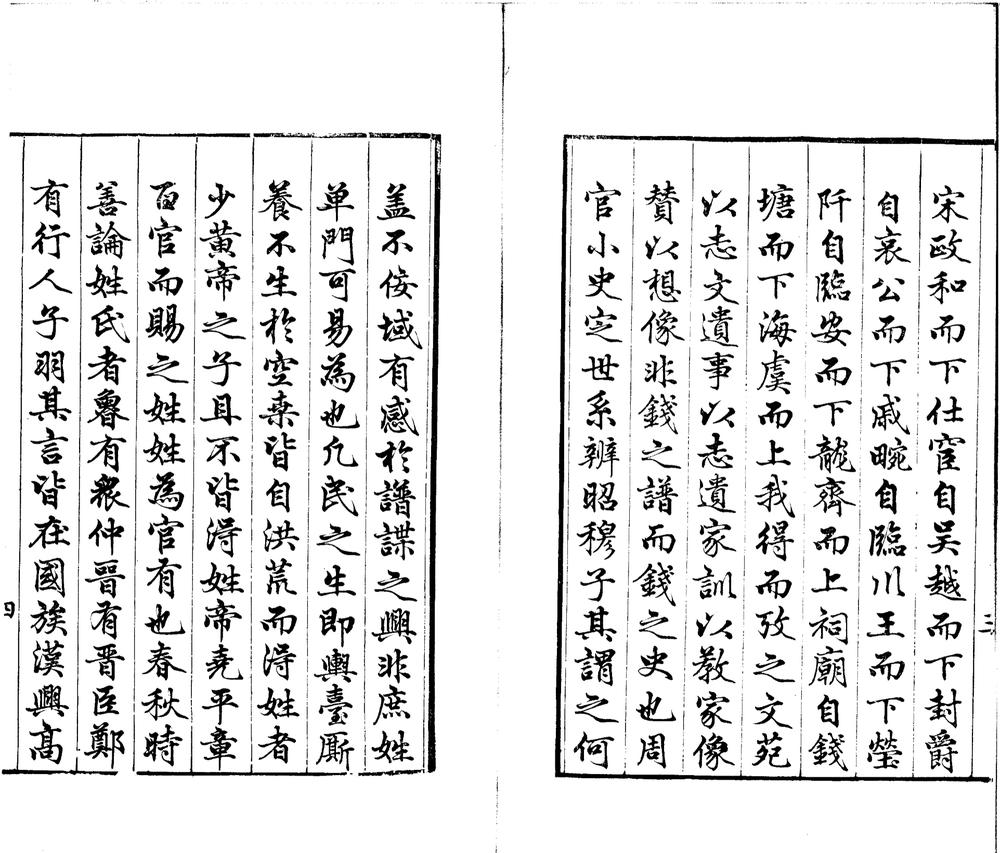 宋政和而下仕宦自吳越而下封爵
自哀公而下戚畹自臨川王而下塋
阡自臨安而下龍齊而上祠廟自錢
塘而下海虞而上我得而攷之文苑
以志文遺事以志遺家訓以教家像
贊以想像非錢之譜而錢之史也周
官小史定世系辨昭穆子其謂之何
三
蓋不佞域有感於譜諜之興非庶姓
单門可易為也凢民之生即輿臺厮
養不生於空桒皆自洪荒而淂姓者
少黃帝之子且不皆淂姓帝堯平章
百官而賜之姓姓為官有也春秋時
善論姓氏者魯有衆仲晉有晋臣鄭
有行人子羽其言皆在國族漢興高
四